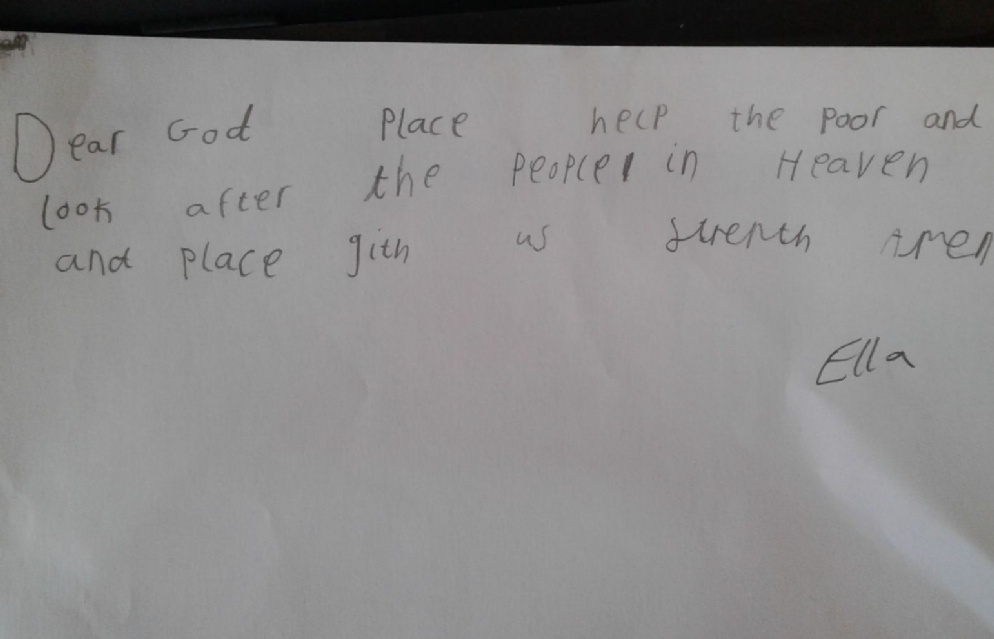 Dear God Place help the Poor and
look after the People in Heaven
and place gith us strenth Amen
Ella